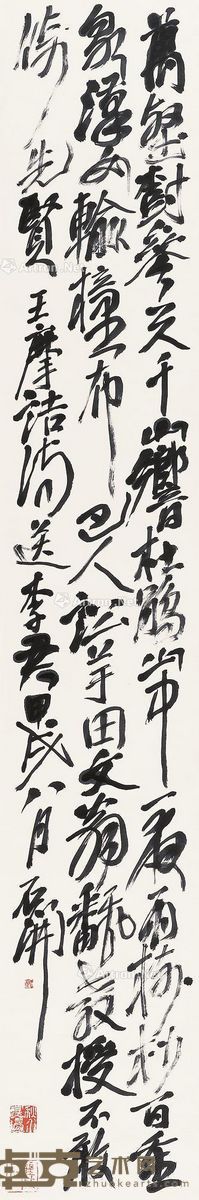 萬壑樹參天千山響杜鵑山中一夜雨樹杪百重
泉漢女輸橦布巴人訟芋田文翁翻教授不敢
倚先賢王摩詰詩送李君甲戌八月石開